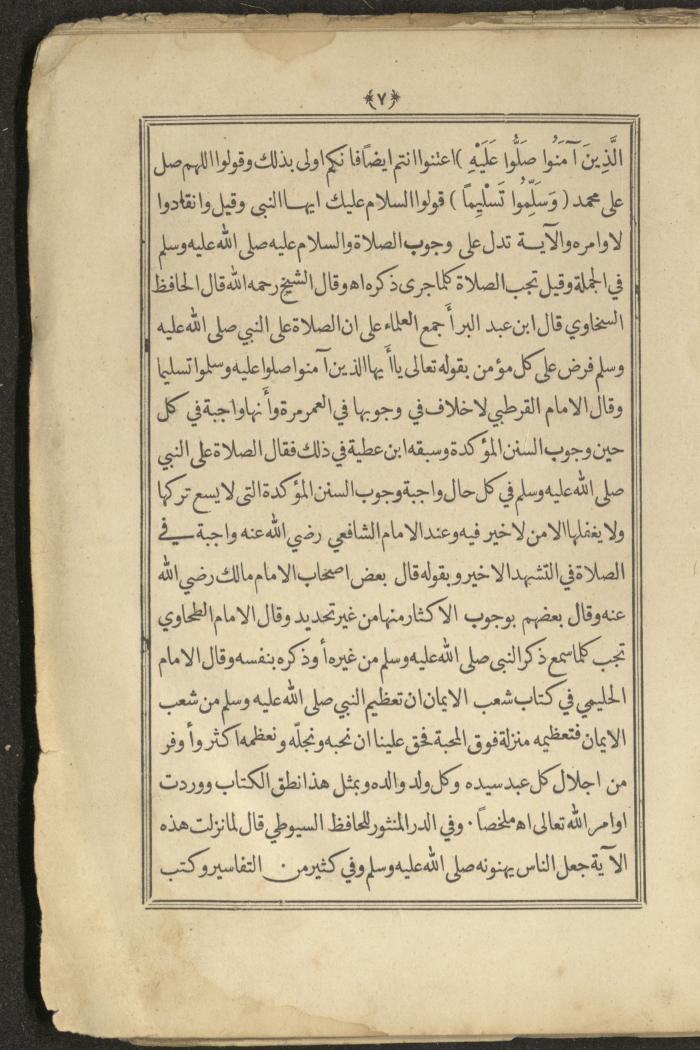 ﴿٧﴾
الَّذِينَ آمَنُوا صَلُّوا عَلَيْهِ ) اعتنوا انتم ايضًا فانكم اولى بذلك وقولوا اللهم صل
على محمد ( وَسَلِّمُوا تَسْلِيمًا ) قولوا السلام عليك ايها النبي وقيل وانقادوا
لاوامره والآية تدل على وجوب الصلاة والسلام عليه صلى الله عليه وسلم
في الجملة وقيل تجب الصلاة كلما جرى ذكره اه وقال الشيخ رحمه الله قال الحافظ
السخاوي قال ابن عبد البر أجمع العلماء على ان الصلاة على النبي صلى الله عليه
وسلم فرض على كل مؤمن بقوله تعالى ياأيها الذين آمنوا صلوا عليه وسلموا تسليما
وقال الامام القرطبي لا خلاف في وجوبها في العمر مرة وأنها واجبة في كل
حين وجوب السنن المؤكدة وسبقه ابن عطية في ذلك فقال الصلاة على النبي
صلى الله عليه وسلم في كل حال واجبة وجوب السنن المؤكدة التى لا يسع تركها
ولا يغفلها الا من لا خير فيه وعند الامام الشافعي رضي الله عنه واجبة في
الصلاة في التشهد الاخير وبقوله قال بعض اصحاب الامام مالك رضي الله
عنه وقال بعضهم بوجوب الاكثار منها من غير تحديد وقال الامام الطحاوي
تجب كلما سمع ذكر النبى صلى الله عليه وسلم من غيره أو ذكره بنفسه وقال الامام
الحليمي في كتاب شعب الايمان ان تعظيم النبي صلى الله عليه وسلم من شعب
الايمان فتعظيمه منزلة فوق المحبة فحق علينا ان نحبه ونجلّه ونعظمه اكثر وأوفر
من اجلال كل عبد سيده وكل ولد والده وبمثل هذا نطق الكتاب ووردت
اوامر الله تعالى اه ملخصًا . وفي الدر المنثور للحافظ السيوطي قال لما نزلت هذه
الآية جعل الناس يهنونه صلى الله عليه وسلم وفي كثير من . التفاسير وكتب